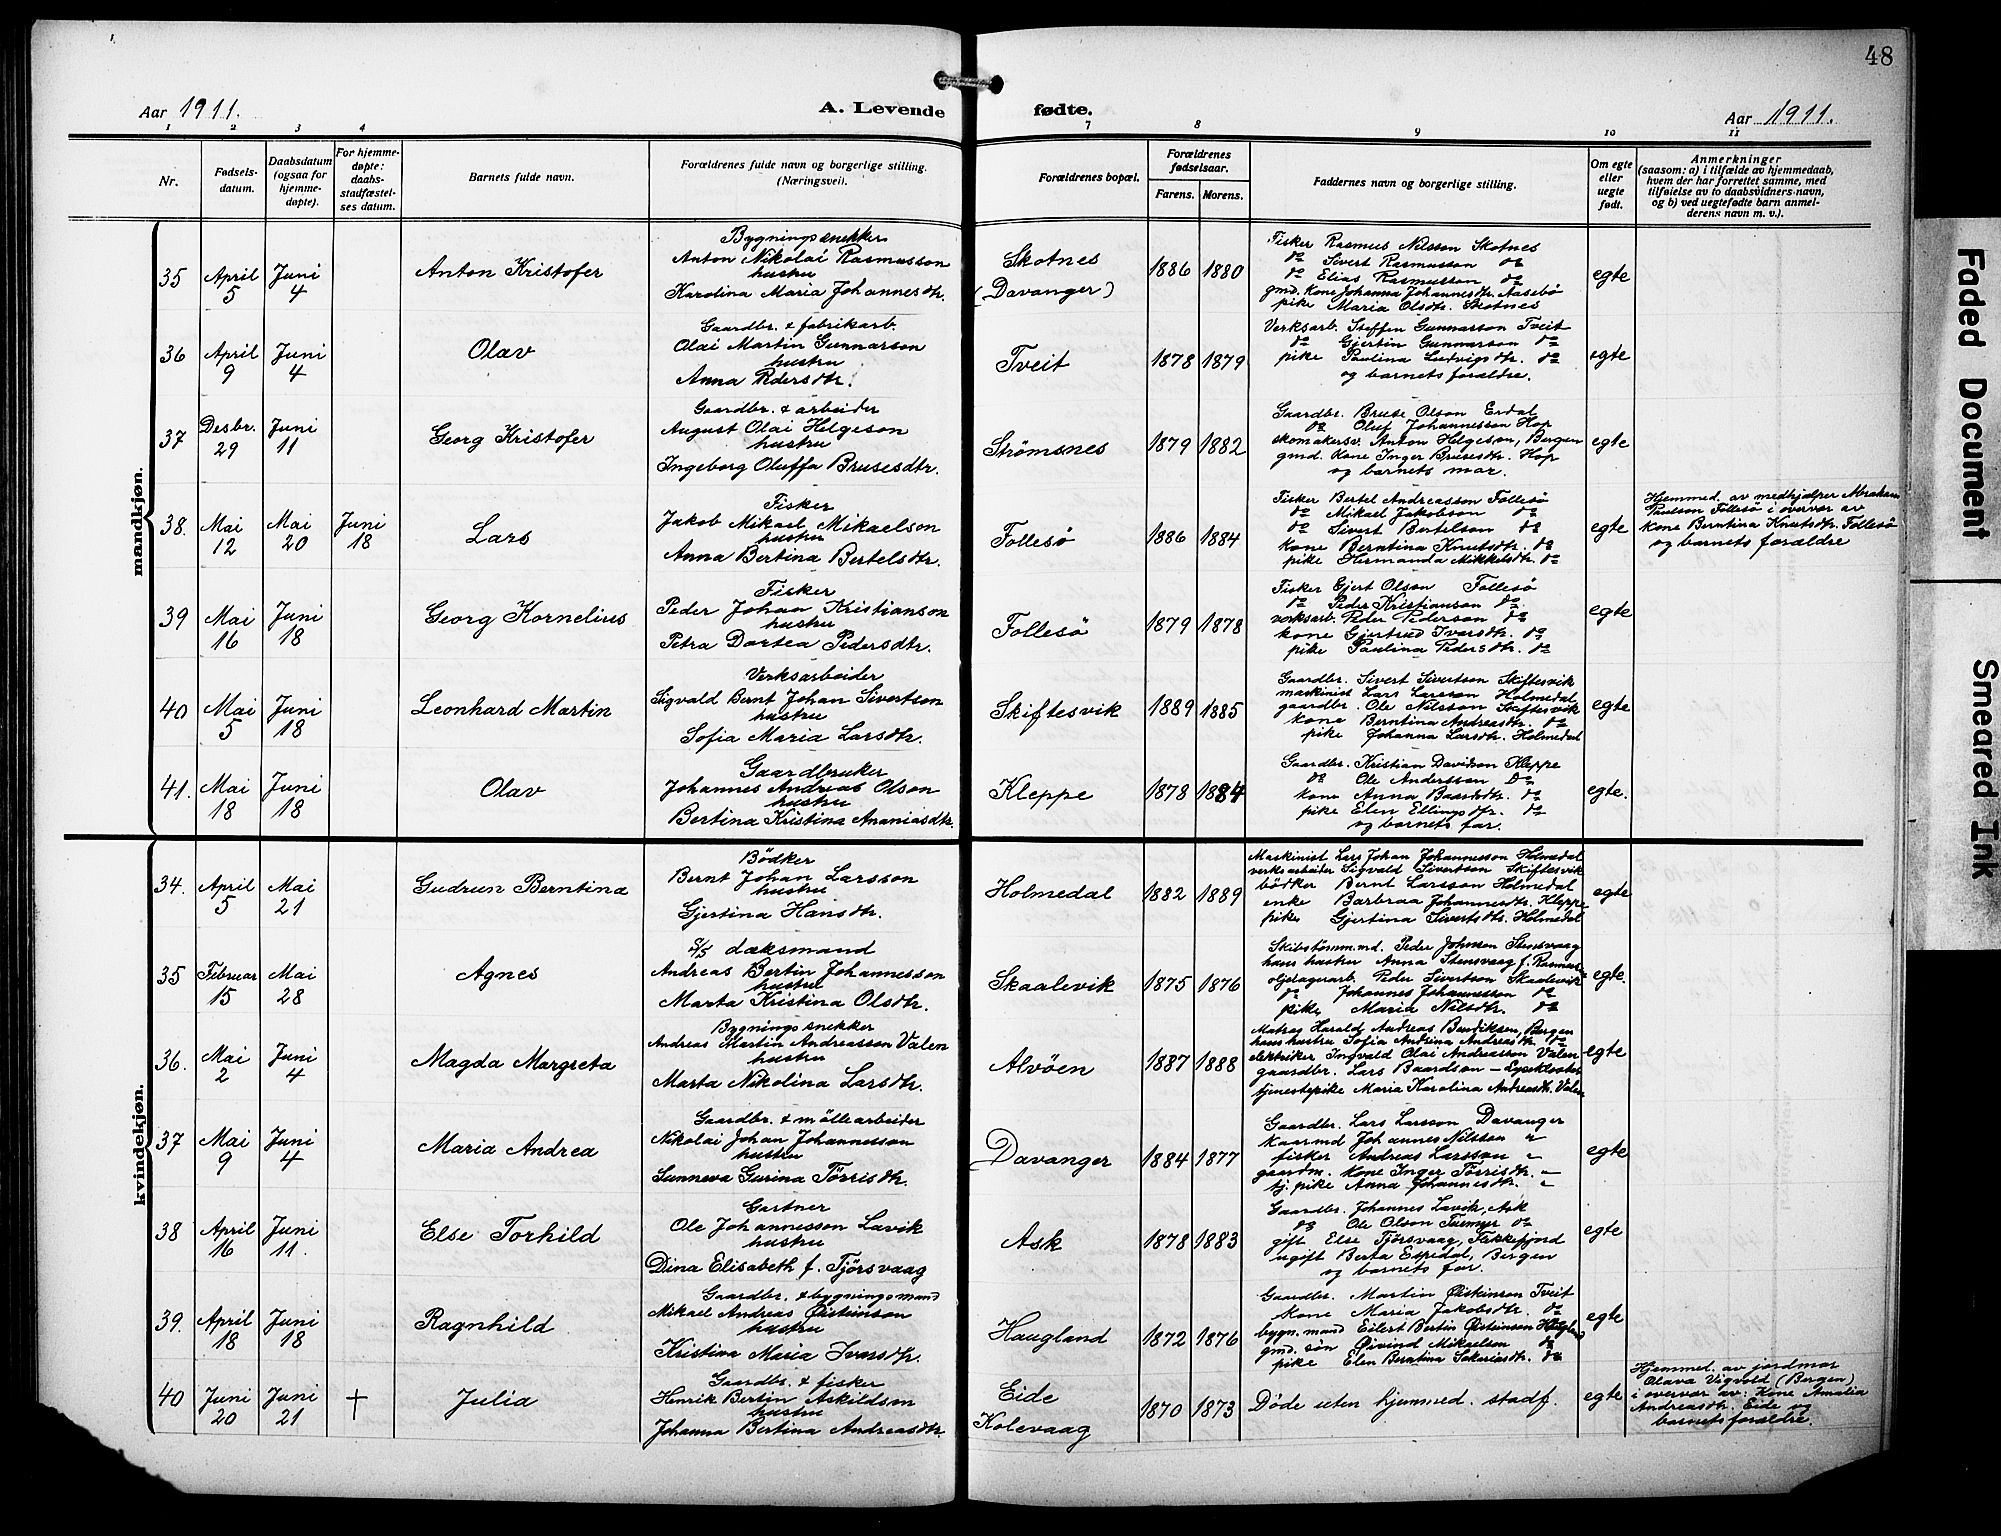 48
Aar 1911.
A. Levende fødte.
Aar 1911.
1 2 3 4 7 8 9 10 11
Nr.
Fødsels-
datum.
Daabsdatum
(ogsaa for
hjemme-
døpte).
For hjemme-
døpte:
daabs-
stadfæstel-
ses datum.
Barnets fulde navn.
Forældrenes fulde navn og borgerlige stilling.
(Næringsvei).
Forældrenes bopæl.
Forældrenes
fødselsaar.
Farens. Morens.
Faddernes navn og borgerlige stilling.
Om egte
eller
uegte
født.
Anmerkninger
(saasom: a) i tilfælde av hjemmedaab,
hvem der har forrettet samme, med
tilføielse av to daabsvidners navn,
og b) ved uegtefødte barn anmel-
derens navn m. v.).
mandkjøn.
35
April
5
Juni
4
Anton Kristofer
Bygningssnekker
Anton Nikolai Rasmusson
hustru
Karolina Maria Johannesdtr.
Skotnes
(Davanger)
1886 1880
Fisker Rasmus Nilsson Skotnes
do Sivert Rasmusson do
do Elias Rasmusson do
gmd. kone Johanna Johannesdtr. Aasebø
pike Maria Olsdtr. Skotnes
egte
36
April
9
Juni
4
Olav
Gaardbr. & fabrikarb.
Olai Martin Gunnarson
hustru
Anna Pedersdtr.
Tveit
1878 1879
Verksarb. Steffen Gunnarsson Tveit
do Gjertin Gunnarson do
pike Paulina Ludvigsdtr. do
og barnets forældre.
egte
37
Desbr.
29
Juni
11
Georg Kristofer
Gaardbr. & arbeider
August Olai Helgeson
hustru
Ingeborg Oluffa Brusesdtr.
Strømsnes
1879 1882
Gaardbr. Bruse Olson Erdal
do Oluf Johannesson Hop
skomakersv. Anton Helgeson, Bergen
gmd. kone Inger Brusesdtr. Hop
og barnets mor.
egte
38.
Mai
12
Mai
20
Juni
18
Lars
Fisker
Jakob Mikael Mikaelson
hustru
Anna Bertina Bertelsdtr.
Follesø
1886 1884
Fisker Bertel Andreasson Follesø
do Mikael Jakobson do
do Sivert Bertelson do
kone Berntina Knutsdtr. do
pike Hermanda Mikkelsdtr. do
egte
Hjemmed. av medhjælper Abraham
Paulson Follesø i overvær av
kone Berntina Knutsdtr. Follesø
og barnets forældre
39
Mai
16
Juni
18
Georg Kornelius
Fisker
Peder Johan Kristianson
hustru
Petra Dortea Pedersdtr.
Follesø
1879 1878
Fisker Gjert Olson Follesø
do Peder Kristianson do
verksarb. Peder Pederson do
kone Gjertrud Ivarsdtr. do
pike Paulina Pedersdtr. do
egte
40
Mai
5
Juni
18
Leonhard Martin
Verksarbeider
Sigvald Bernt Johan Sivertson
hustru
Sofia Maria Larsdtr.
Skiftesvik
1889 1885
Gaardbr. Sivert Sivertson Skiftesvik
maskinist Lars Larsson Holmedal
gaardbr. Ole Nilsson Skiftesvik
kone Berntina Andreasdtr. do
pike Johanna Larsdtr. Holmedal
egte
41.
Mai
18
Juni
18
Olav
Gaardbruker
Johannes Andreas Olson
hustru
Bertina Kristina Ananiasdtr.
Kleppe
1878 1884
Gaardbr. Kristian Davidson Kleppe
do Ole Andersson do
kone Anna Baardsdtr. do
pike Elen Ellingsdtr. do
og barnets far.
egte.
kvindekjøn.
34.
April
5
Mai
21
Gudrun Berntina
Bødker
Bernt Johan Larsson
hustru
Gjertina Hansdtr.
Holmedal
1882 1889
Maskinist Lars Johan Johannesson Holmedal
verksarbeider Sigvald Sivertson Skiftesvik
bødker Bernt Larsson Holmedal
enke Barbraa Johannesdtr. Kleppe
pike Gjertina Sivertsdtr. Holmedal
egte
35
Februar
15
Mai
28
Agnes
d/s dæksmand
Andreas Bertin Johannesson
hustru
Marta Kristina Olsdtr.
Skaalevik
1875 1876
Skibstømm.md. Peder Johnson Stensvaag
hans hustru Anna Stensvaag f. Rasmus-
oljelagerarb. Peder Sivertson Skaalevik
do Johannes Johannesson do
pike Maria Nilsdtr. do
egte.
36.
Mai
2
Juni
4
Magda Margreta
Bygningssnekker
Andreas Martin Andreasson Valen
hustru
Marta Nikolina Larsdtr.
Alvøen
1887 1888
Matros Harald Andreas Bendiksen, Bergen
hans hustru Sofia Andrina Andreasdtr. do
elektriker Ingvald Olai Andreasson Valen
gaardbr. Lars Baardson – Lyseklostert
tjenestepike Maria Karolina Andreasdtr. Valen
egte
37
Mai
9
Juni
4
Maria Andrea
Gaardbr. & møllearbeider
Nikolai Johan Johannesson
hustru
Sunneva Gurina Tørrisdtr.
Davanger
1884 1877
Gaardbr. Lars Larsson Davanger
kaarmd Johannes Nilsson "
fisker Andreas Larsson "
gaardm. kone Inger Tørrisdtr. "
tj. pike Anna Johannesdtr. "
egte
38
April
16
Juni
11.
Else Torhild
Gartner
Ole Johannesson Lavik
hustru
Dina Elisabeth f. Tjørsvaag
Ask
1878 1883
Gaardbr. Johannes Lavik, Ask
do Ole Olson Turmyr do
gift Else Tjørsvaag, Flekkefjord
ugift Berta Espedal, Bergen
og barnets far.
egte
39.
April
18
Juni
18
Ragnhild
Gaardbr. & bygningsmand
Mikael Andreas Øistenson
hustru
Kristina Maria Ivarsdtr.
Haugland
1872 1876
Gaardbr. Martin Øistenson Tveit
kone Maria Jakobsdtr. do
bygn. mand Eilert Bertin Øistenson Haugland
gmd. søn Øivind Mikaelson do
pike Elen Berntina Sakariasdtr. do
egte
40
Juni
20
Juni
21
†
Julia
Gaardbr. & fisker
Henrik Bertin Askildson
hustru
Johanna Bertina Andreasdtr.
Eide
Kolevaag
1870 1873
Døde uten hjemmed. stadf.
egte
Hjemmed. av jordmor
Olava Vigvold (Bergen)
i overvær av: kone Amalia
Andreasdtr. Eide og
barnets forældre.
Faded Document
Smeared Ink